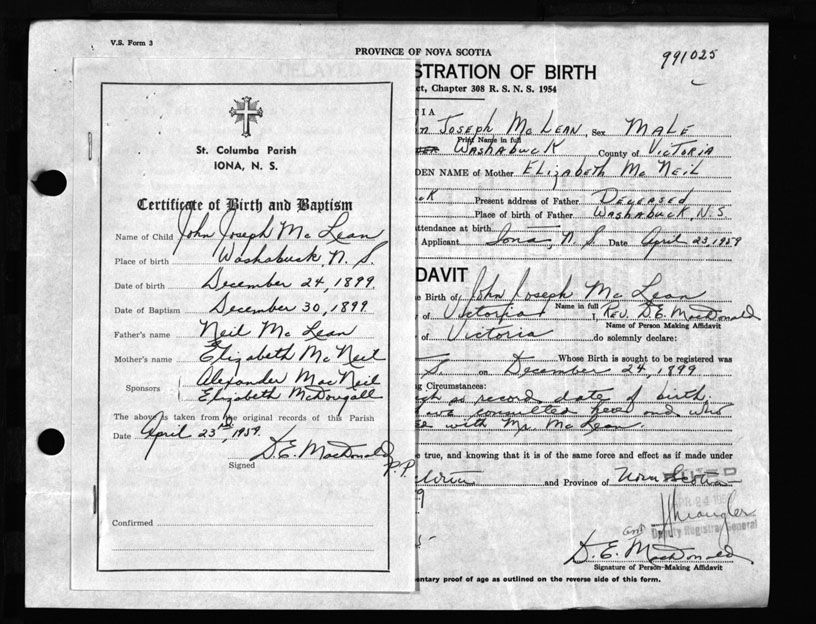 V.S. Form 3
PROVINCE OF NOVA SCOTIA
991025
STRATION OF BIRTH
ct, Chapter 308 R. S. N. S. 1954
St. Columba Parish
IONA, N. S.
Certificate of Birth and Baptism
Name of Child John Joseph Mc Lean
Place of birth Washabuck, N. S.
Date of birth December 24, 1899.
Date of Baptism December 30, 1899.
Father's name Neil Mc Lean
Mother's name Elizabeth Mc Neil
Sponsors Alexander MacNeil
Elizabeth McDougall
The above is taken from the original records of this Parish
Date April 23rd, 1959.
Signed D. E. MacDonald P.P.
Confirmed
TIA
Joseph McLean, Sex MALE
Print Name in full
Washabuck County of Victoria
DEN NAME of Mother Elizabeth McNeil
ck Present address of Father Deceased
Place of birth of Father Washabuck, N.S
ttendance at birth
Applicant Iona, N. S. Date April 23, 1959
DAVIT
e Birth of John Joseph Mc Lean
Name in full
of Victoria I, Rev. D.E. MacDonald
Name of Person Making Affidavit
of Victoria do solemnly declare:
S. on December 24, 1899 Whose Birth is sought to be registered was
ng Circumstances:
as record date of birth.
consulted here and who
with Mr. McLean.
e true, and knowing that it is of the same force and effect as if made under
and Province of Nova Scotia
APR 24 195
Deputy Registrar General
D. E. MacDonald
Signature of Person Making Affidavit
entary proof of age as outlined on the reverse side of this form.